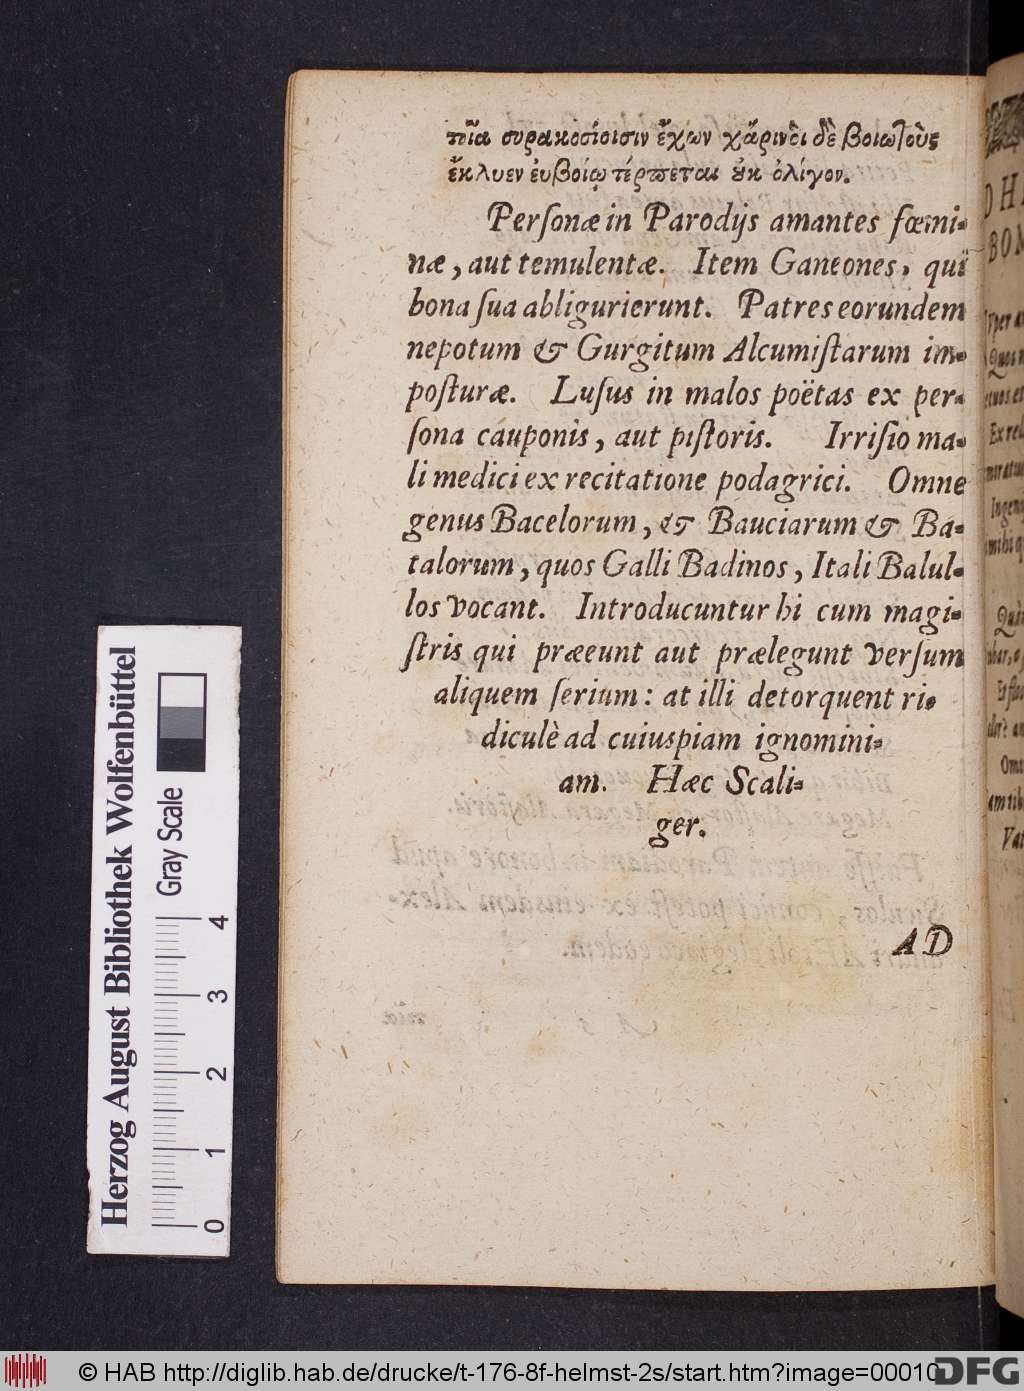 πῖα συρακοσίοισιν ἔχων χάριν
ἔκλυεν ἐυβοίῳ τέρπεται ὀκ ὀλίγον.
Perſonæ in Parodijs amantes fœmi-
næ, aut temulentæ. Item Ganeones, qui
bona ſua abligurierunt. Patres eorundem
nepotum & Gurgitum Alcumiſtarum im-
poſturæ. Luſus in malos poëtas ex per-
ſona cauponis, aut piſtoris. Irriſio ma-
li medici ex recitatione podagrici. Omne
genus Bacelorum, & Bauciarum & Ba-
talorum, quos Galli Badinos, Itali Balul-
los vocant. Introducuntur hi cum magi-
ſtris qui præeunt aut prælegunt verſum
aliquem ſerium: at illi detorquent ri-
diculè ad cuiuspiam ignomini-
am. Hæc Scali-
ger.
AD
Herzog August Bibliothek Wolfenbüttel
Gray Scale
0 1 2 3 4
© HAB http://diglib.hab.de/drucke/t-176-8f-helmst-2s/start.htm?image=00010
DFG